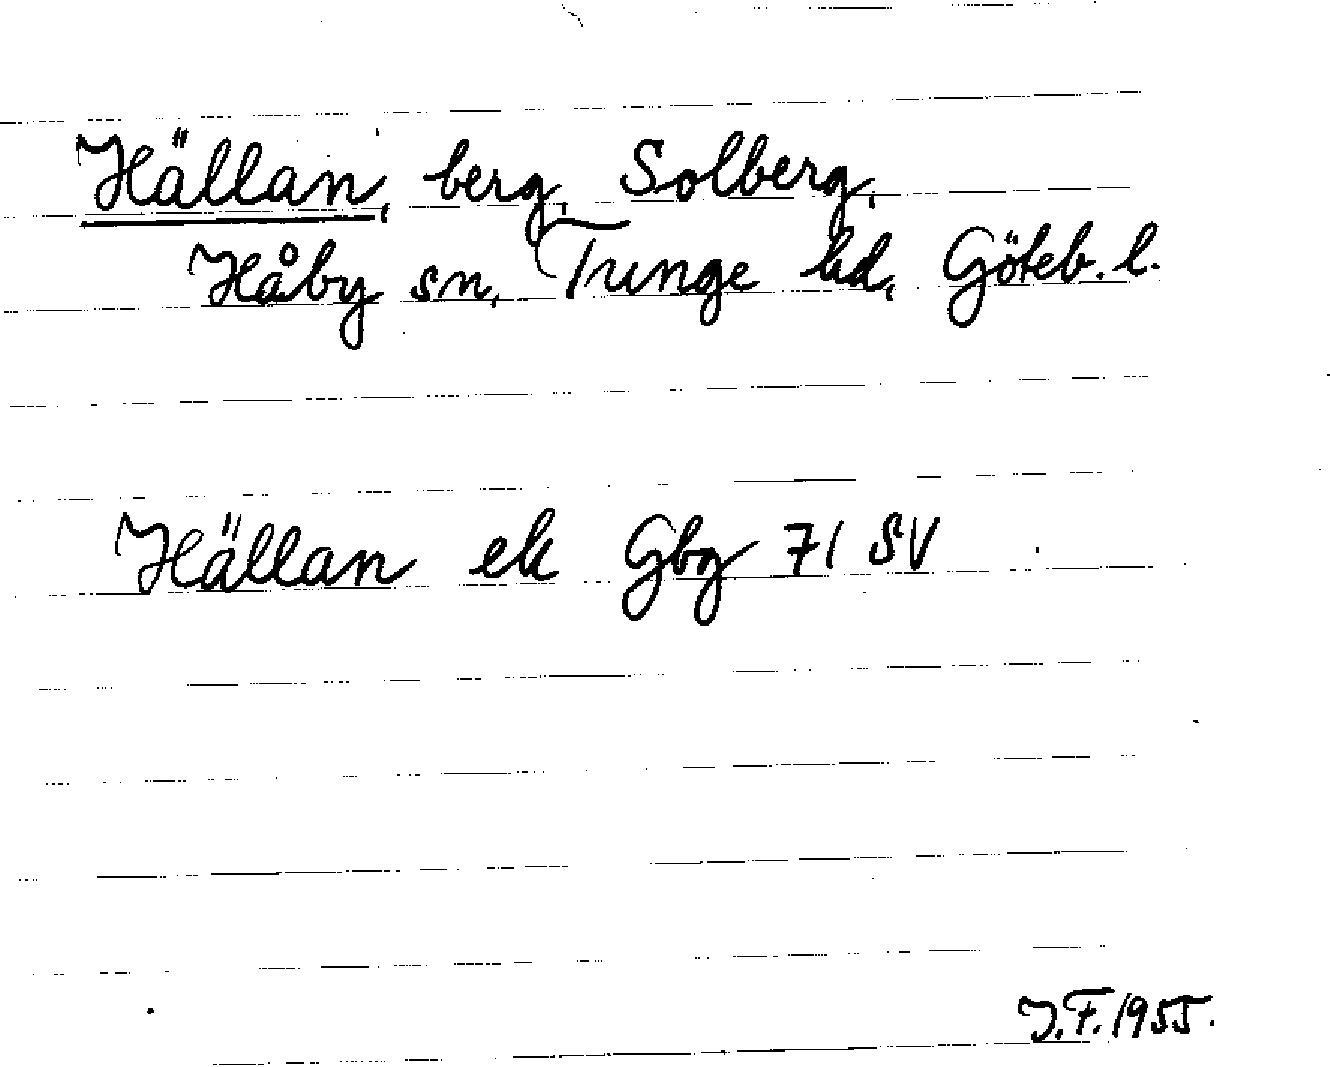 Hällan, berg, Solberg,
Håby sn, Tunge hd, Göteb. l.
Hällan ek Gbg 71 SV
J.F. 1955.